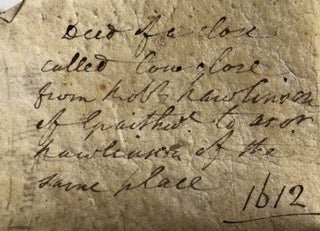 Deed of a close
called Cow close
from Robt Rawlinson
of Graithwt to
Rawlinson of the
same place
1612